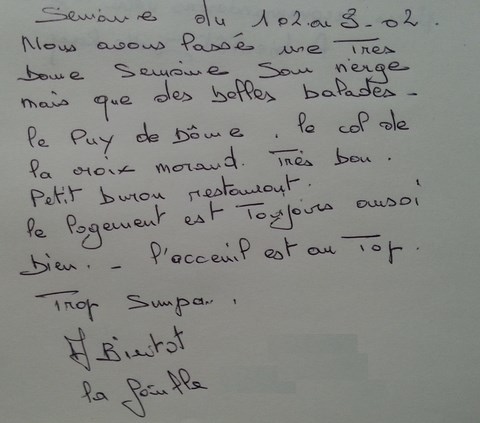 Semaine du 1.02 au 8-02.
Nous avons passé une Très
bonne Semaine San neige
mais que des belles balades -
le Puy de Dôme. le col de
la croix morand. Très bon.
Petit buron restaurant.
le logement est Toujours aussi
bien. - l'acceuil est au Top.
Trop Simpa..
A Bientot
la